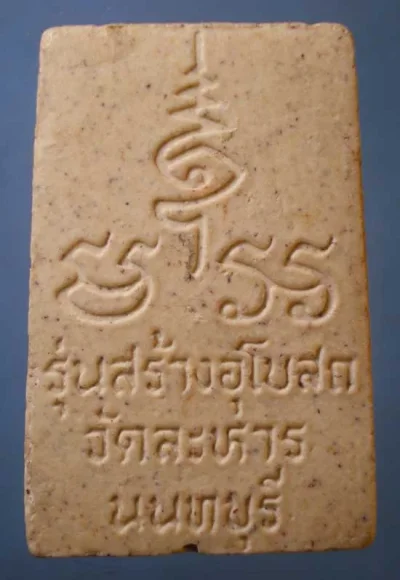 รุ่นสร้างอุโบสถ
วัดละหาร
นนทบุรี